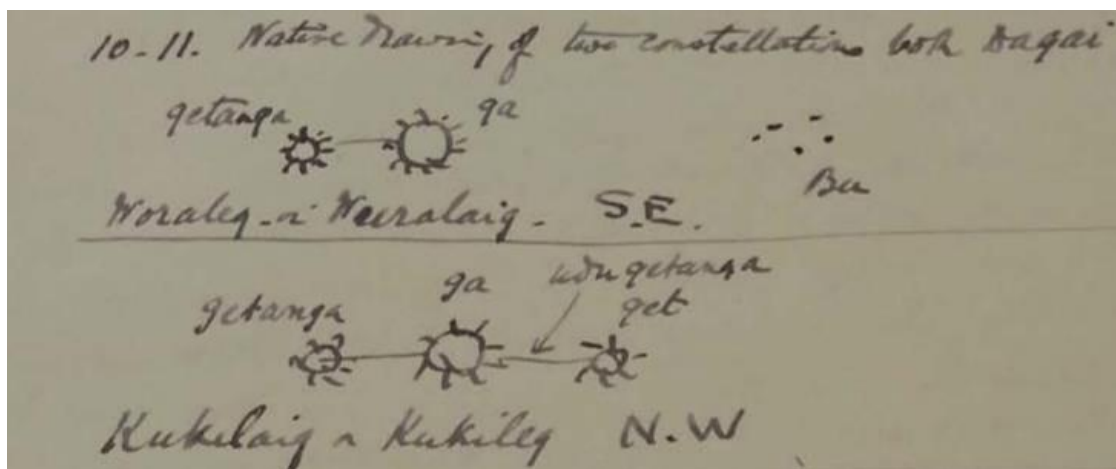 10-11. Native Drawing of two constellations both Dagai
getanga ga
Bu
Woraleg - or Weuralaig - S.E.
ga udu getanga
getanga get
Kukilaig or Kukileg N.W